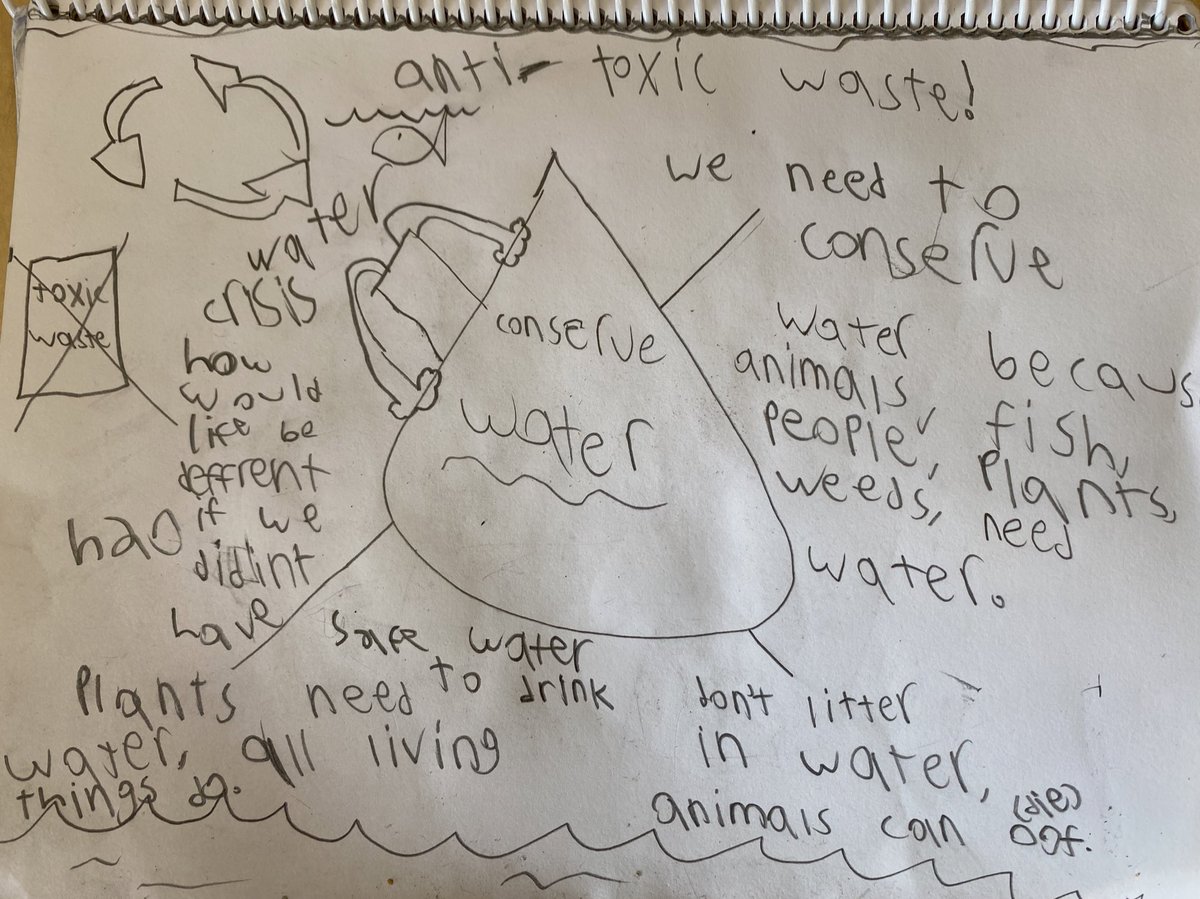 anti- toxic waste!
we need to
conserve
water becaus
animals
people, fish,
weeds, plants,
need
water.
toxic
waste
water
crisis
how
would
life be
deffrent
had if we
didint
have
safe water
to drink
conserve
water
Plants need
water, all living
things do.
don't litter
in water,
animals can (die)
oof.